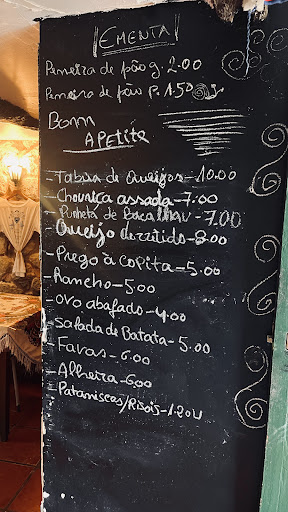 Ementa
Peneira de pão g. 2.00
Peneira de pão P. 1.50
Bom
APetite
- Tabua de Queijos - 10.00
- Chouriça assada - 7.00
- Punheta de Bacalhau - 7.00
- Queijo derretido - 8.00
- Prego à Copita - 5.00
- Rancho - 5.00
- Ovo abafado - 4.00
- Salada de Batata - 5.00
- Favas - 6.00
- Alheira - 6,00
- Pataniscas/Risois - 1.20U